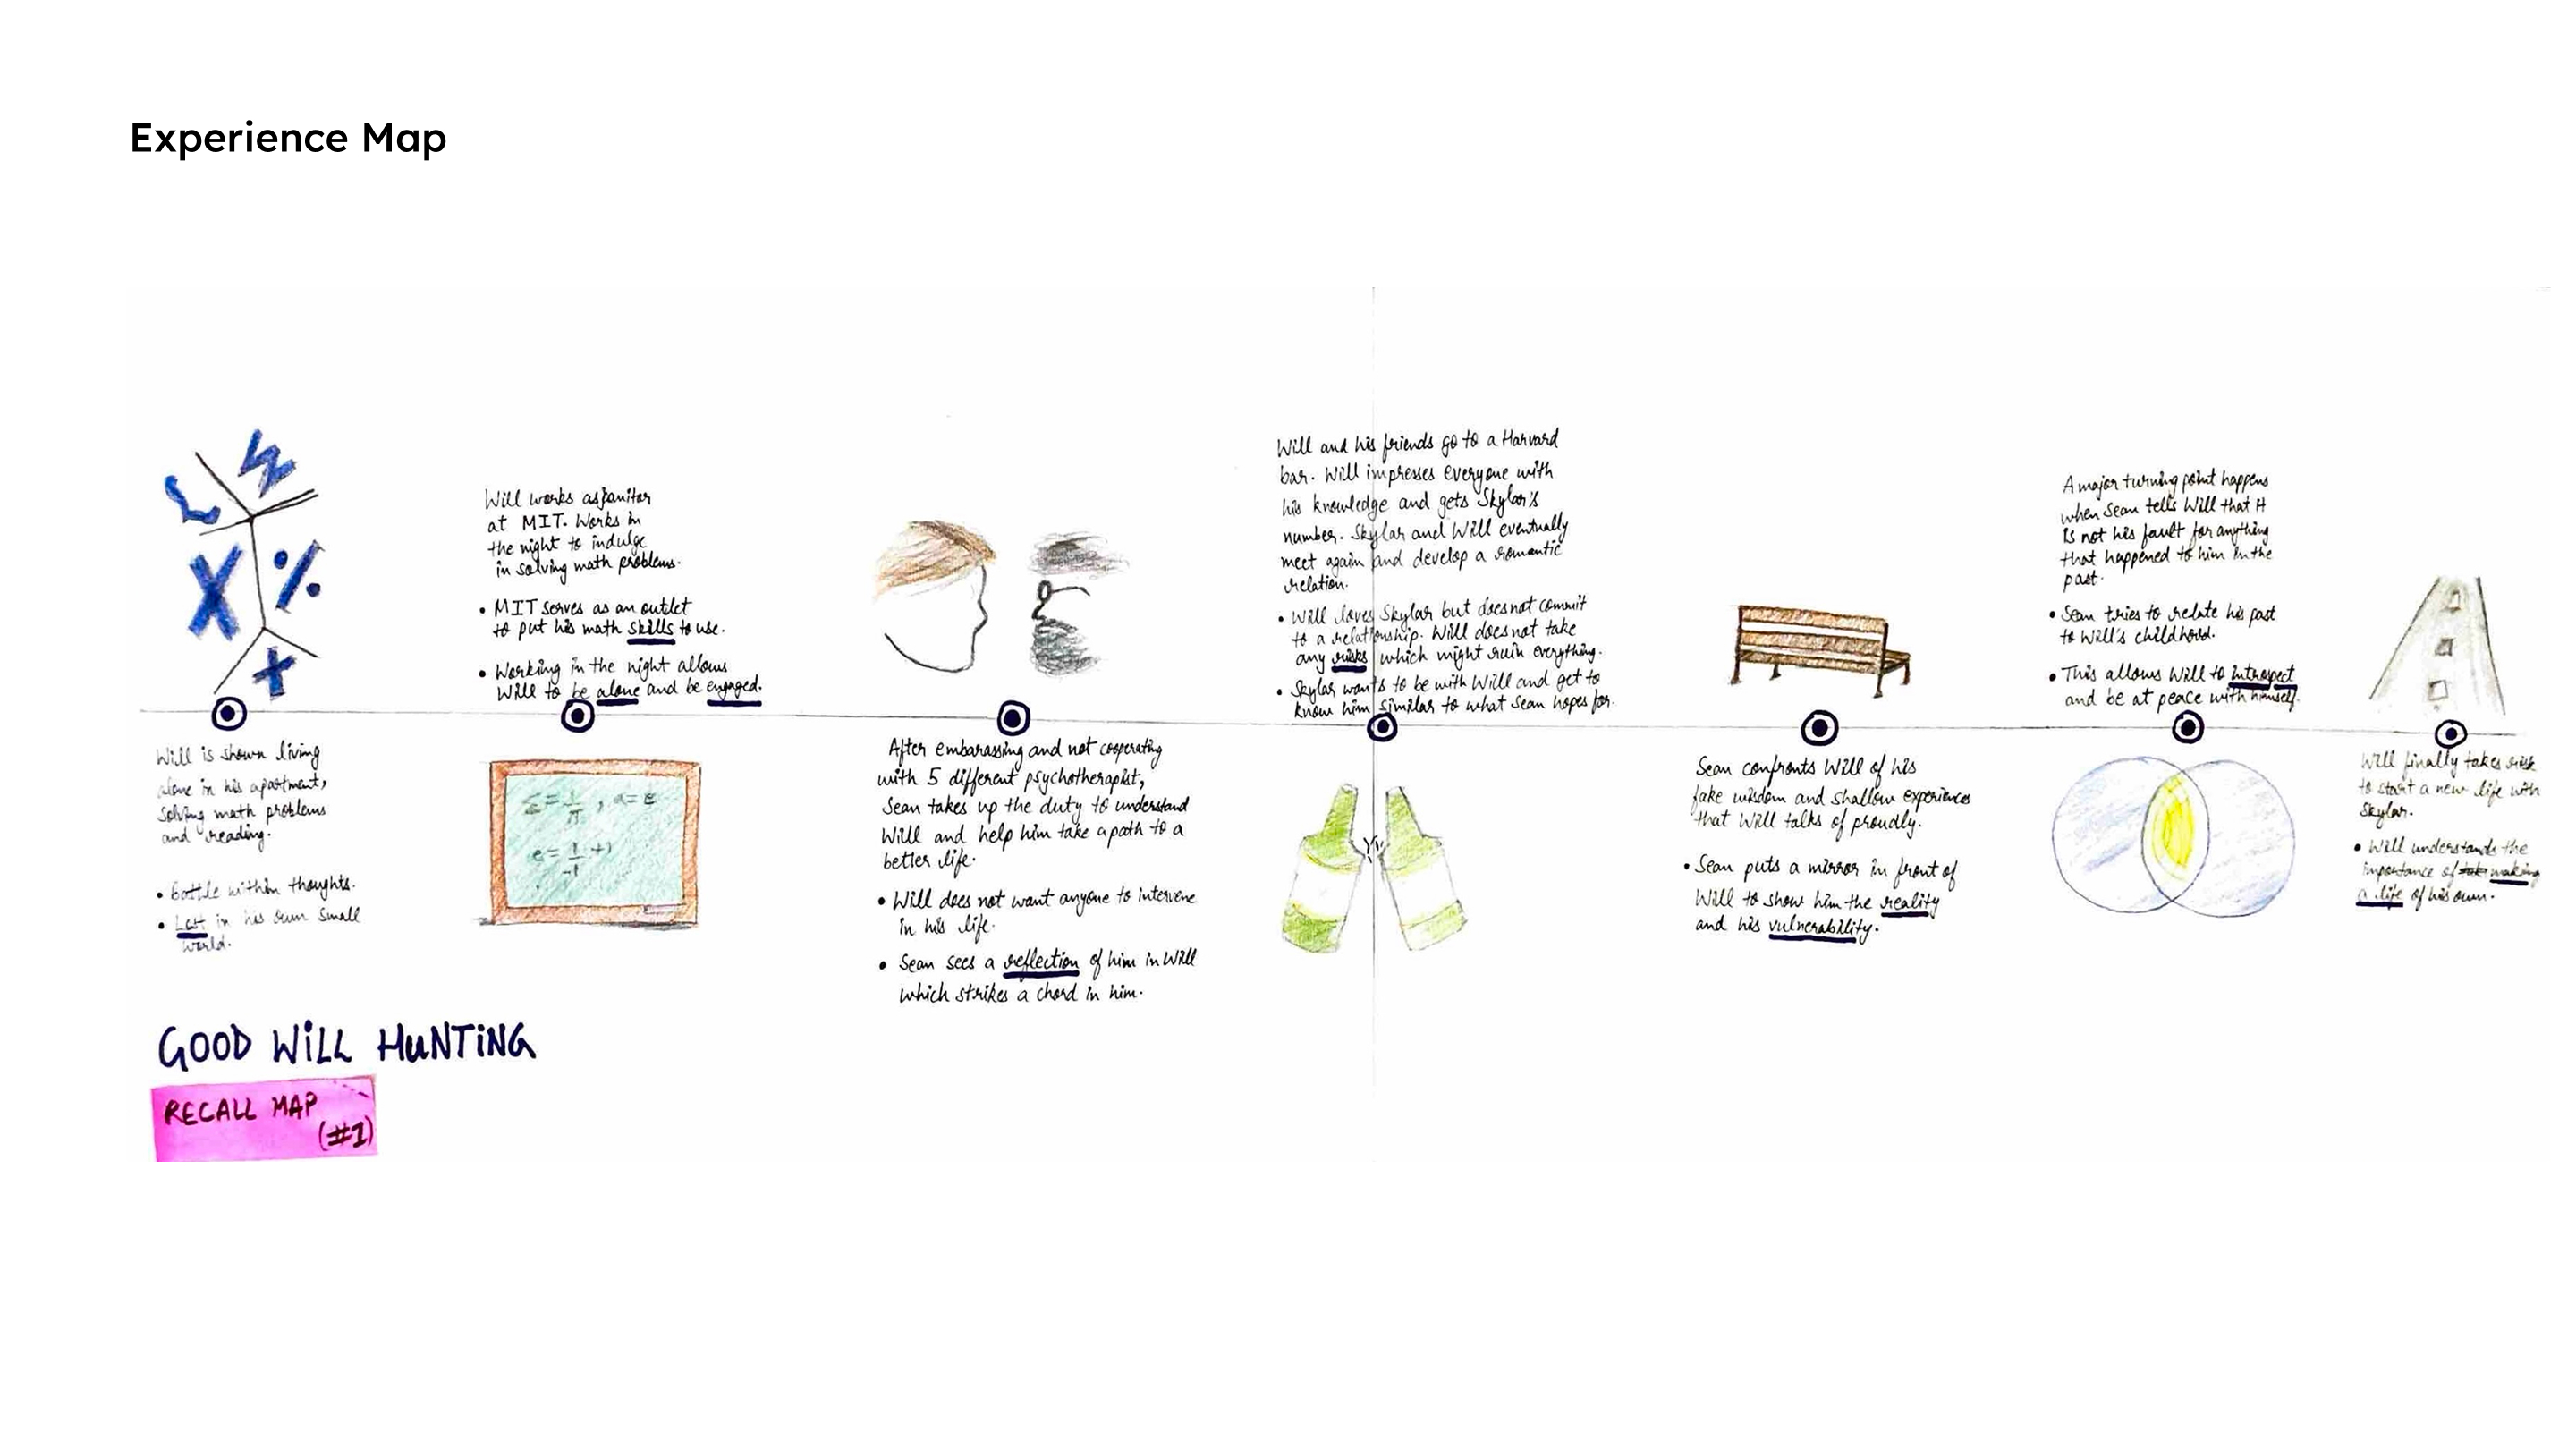 Experience Map
Will is shown living
alone in his apartment,
solving math problems
and reading.
• battle within thoughts.
• Lost in his own small
world.
Will works as janitor
at MIT. Works in
the night to indulge
in solving math problems.
• MIT serves as an outlet
to put his math skills to use.
• Working in the night allows
Will to be alone and be engaged.
After embarassing and not cooperating
with 5 different psychotherapist,
Sean takes up the duty to understand
Will and help him take a path to a
better life.
• Will does not want anyone to intervene
in his life.
• Sean sees a reflection of him in Will
which strikes a chord in him.
Will and his friends go to a Harvard
bar. Will impresses everyone with
his knowledge and gets Skylar's
number. Skylar and Will eventually
meet again and develop a romantic
relation.
• Will loves Skylar but does not commit
to a relationship. Will does not take
any risks which might ruin everything.
• Skylar wants to be with Will and get to
know him similar to what Sean hopes for.
Sean confronts Will of his
fake wisdom and shallow experiences
that Will talks of proudly.
• Sean puts a mirror in front of
Will to show him the reality
and his vulnerability.
A major turning point happens
when Sean tells Will that it
is not his fault for anything
that happened to him in the
past.
• Sean tries to relate his past
to Will's childhood.
• This allows Will to introspect
and be at peace with himself.
Will finally takes risk
to start a new life with
Skylar.
• Will understands the
importance of making
a life of his own.
GOOD WILL HUNTING
RECALL MAP
(#1)